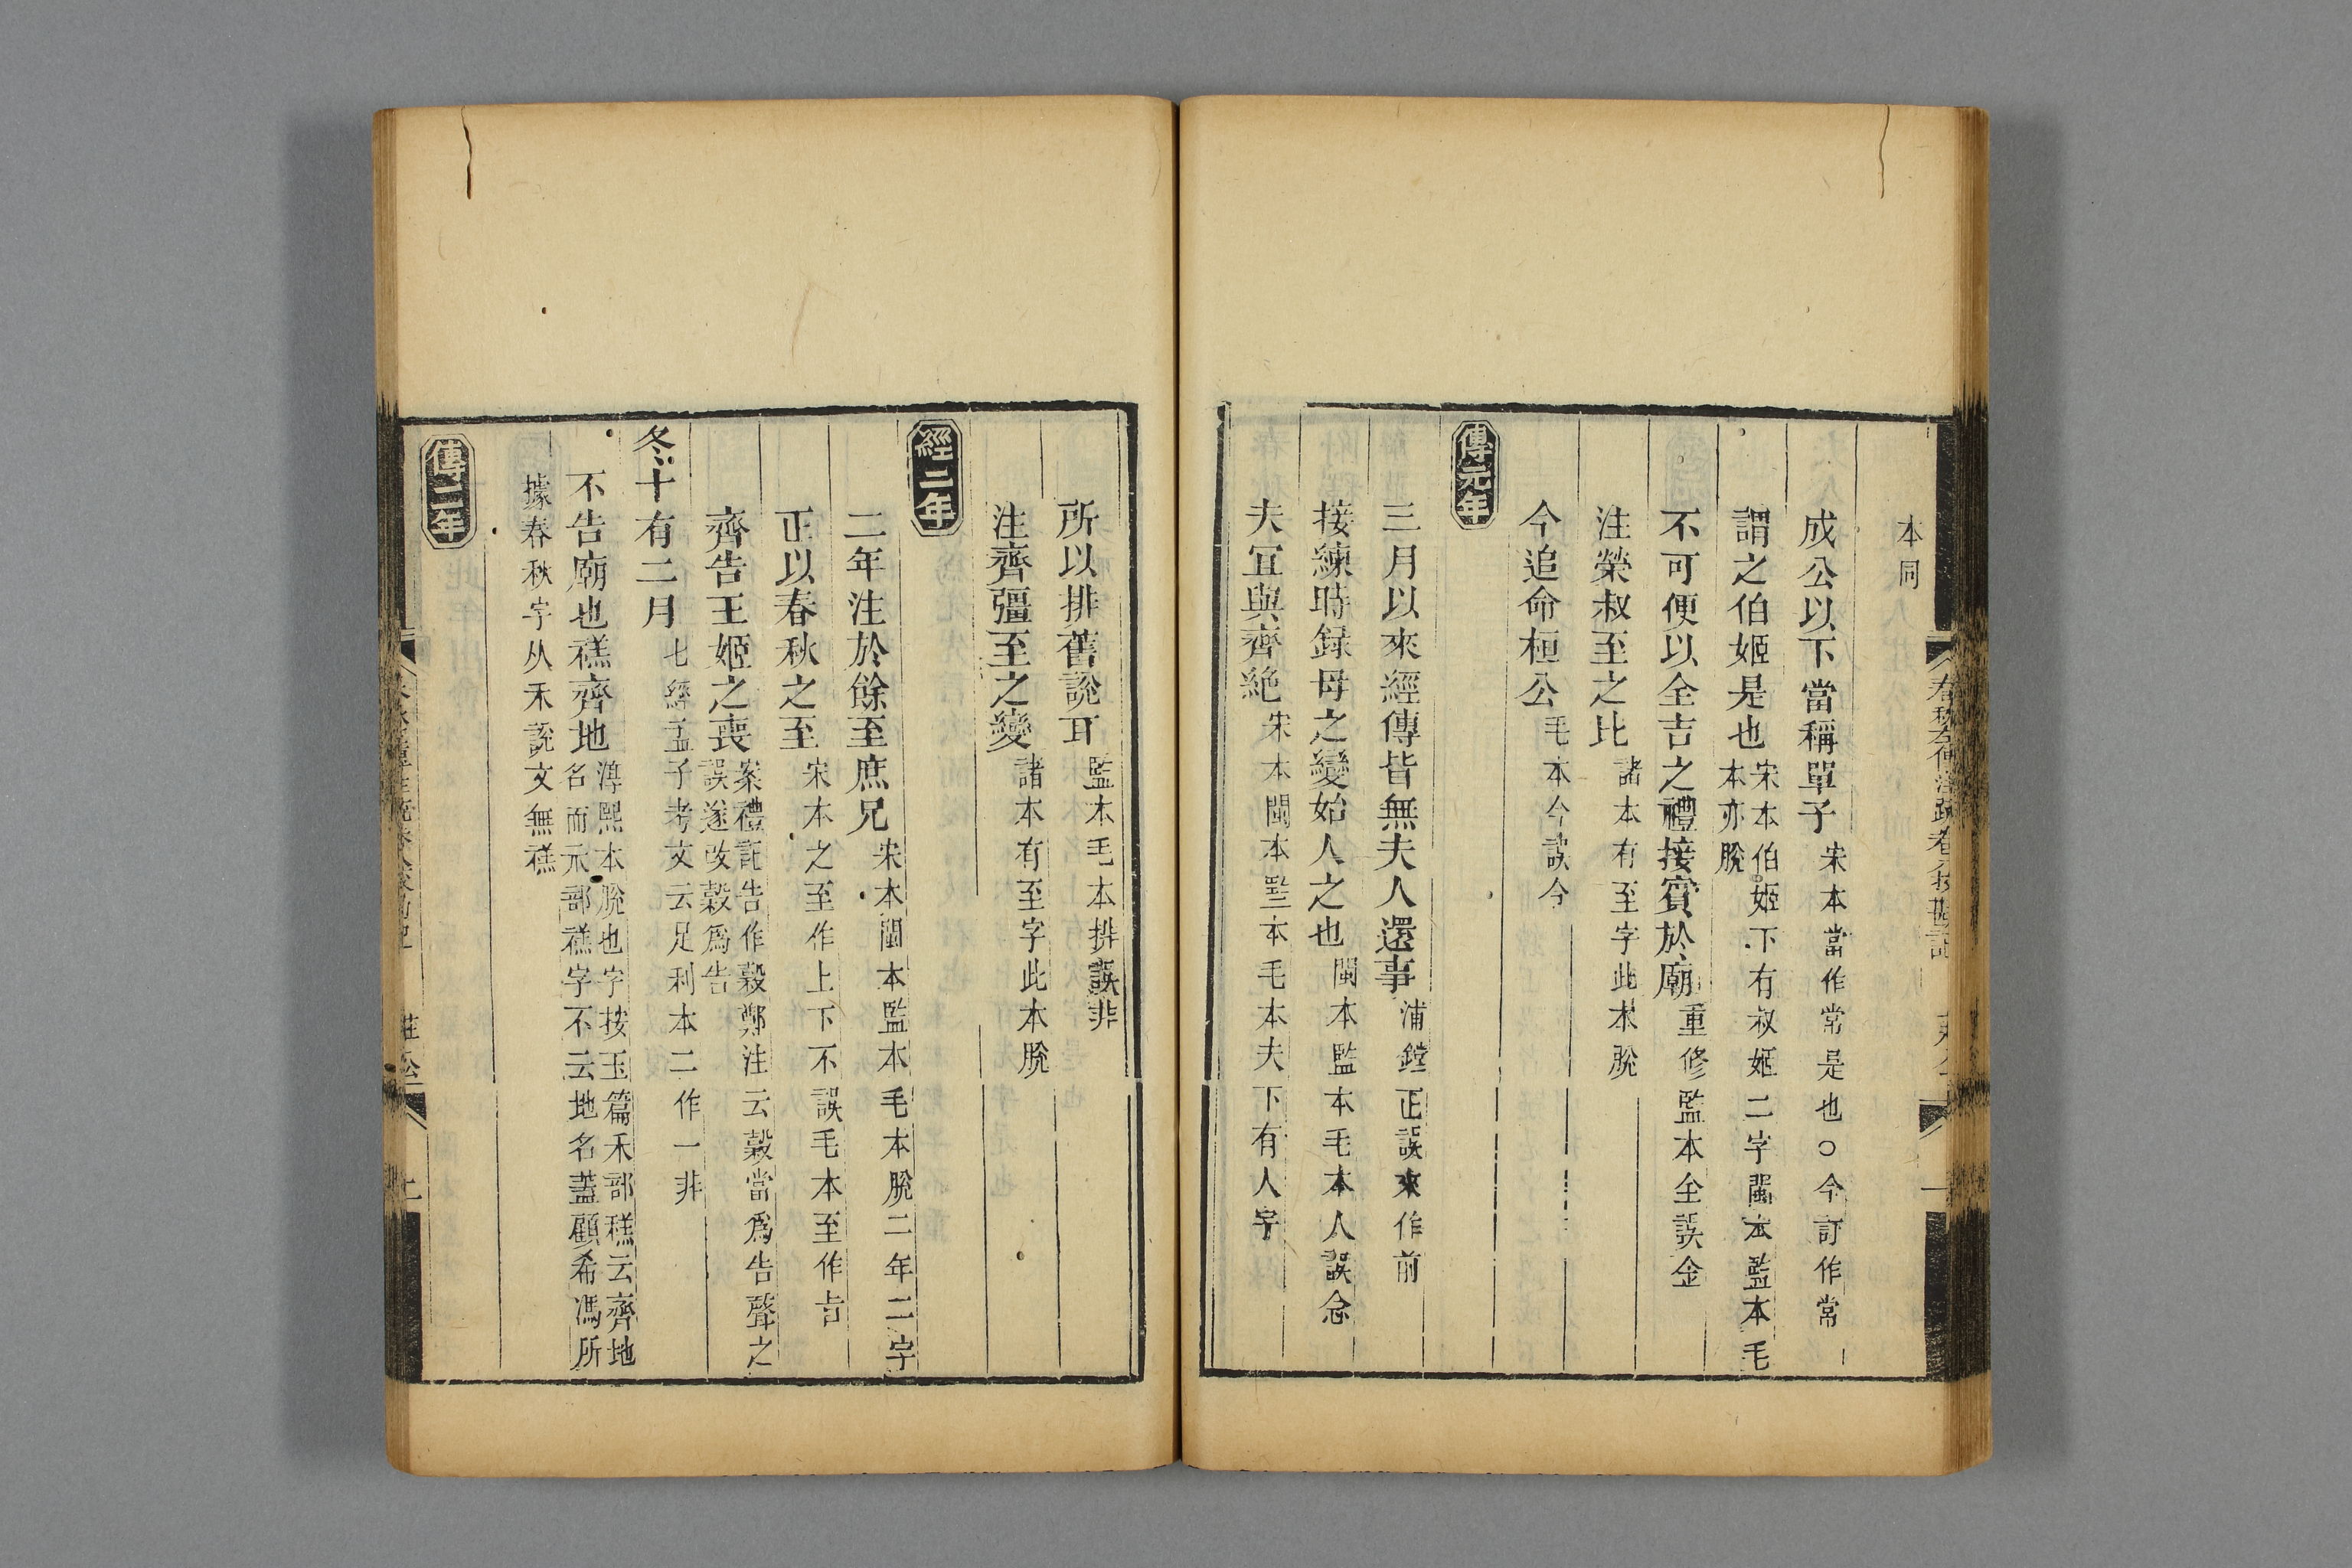 本同
成公以下當稱單子宋本當作常是也○今訂作常
謂之伯姬是也宋本伯姬下有叔姬二字閩本監本毛
本亦脫
不可便以全吉之禮接賓於廟重修監本全誤金
注榮叔至之比諸本有至字此本脫
今追命桓公毛本今誤令
傳元年
三月以來經傳皆無夫人還事浦鏜正誤來作前
接練時録母之變始人之也閩本監本毛本人誤念
夫宜與齊絶宋本閩本監本毛本夫下有人字
所以排舊說耳監本毛本排誤非
注齊彊至之變諸本有至字此本脫
經二年
二年注於餘至庶兄宋本閩本監本毛本脫二年二字
正以春秋之至宋本之至作上下不誤毛本至作吉
齊告王姬之喪案禮記告作穀鄭注云穀當爲告聲之
誤遂改穀爲告
冬十有二月七經孟子考文云足利本二作一非
不告廟也禚齊地淳熙本脫也字按玉篇禾部䅵云齊地
名而示部禚字不云地名蓋顧希馮所
據春秋字从禾說文無禚
傳二年